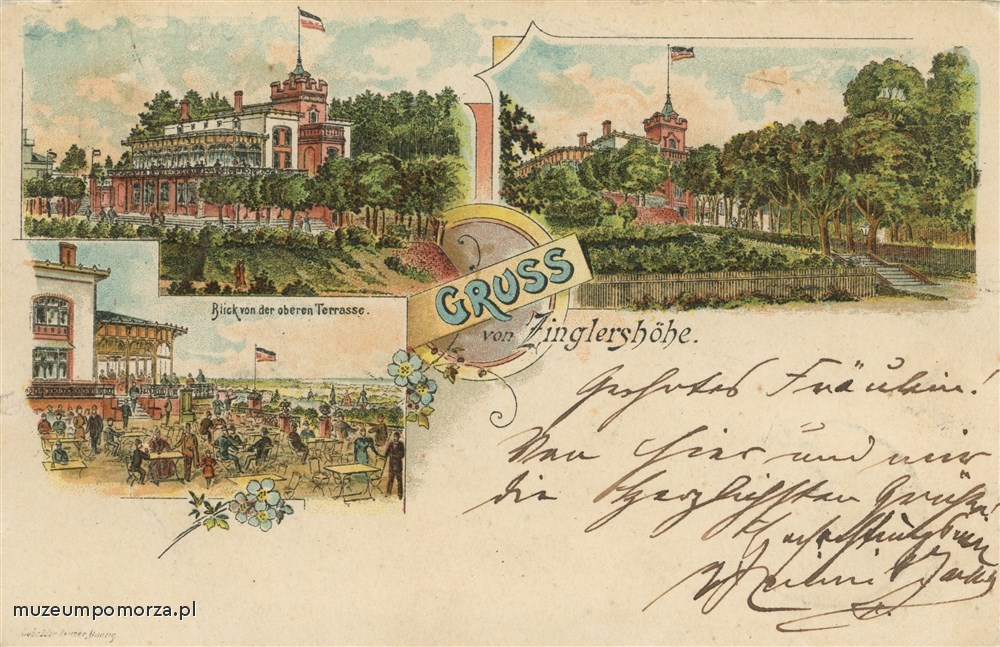 Blick von der oberen Terrasse.
GRUSS
von Zinglershöhe.
Geehrtes Fräulein!
Von hier und mir
die Herzlichsten Grüße!
muzeumpomorza.pl